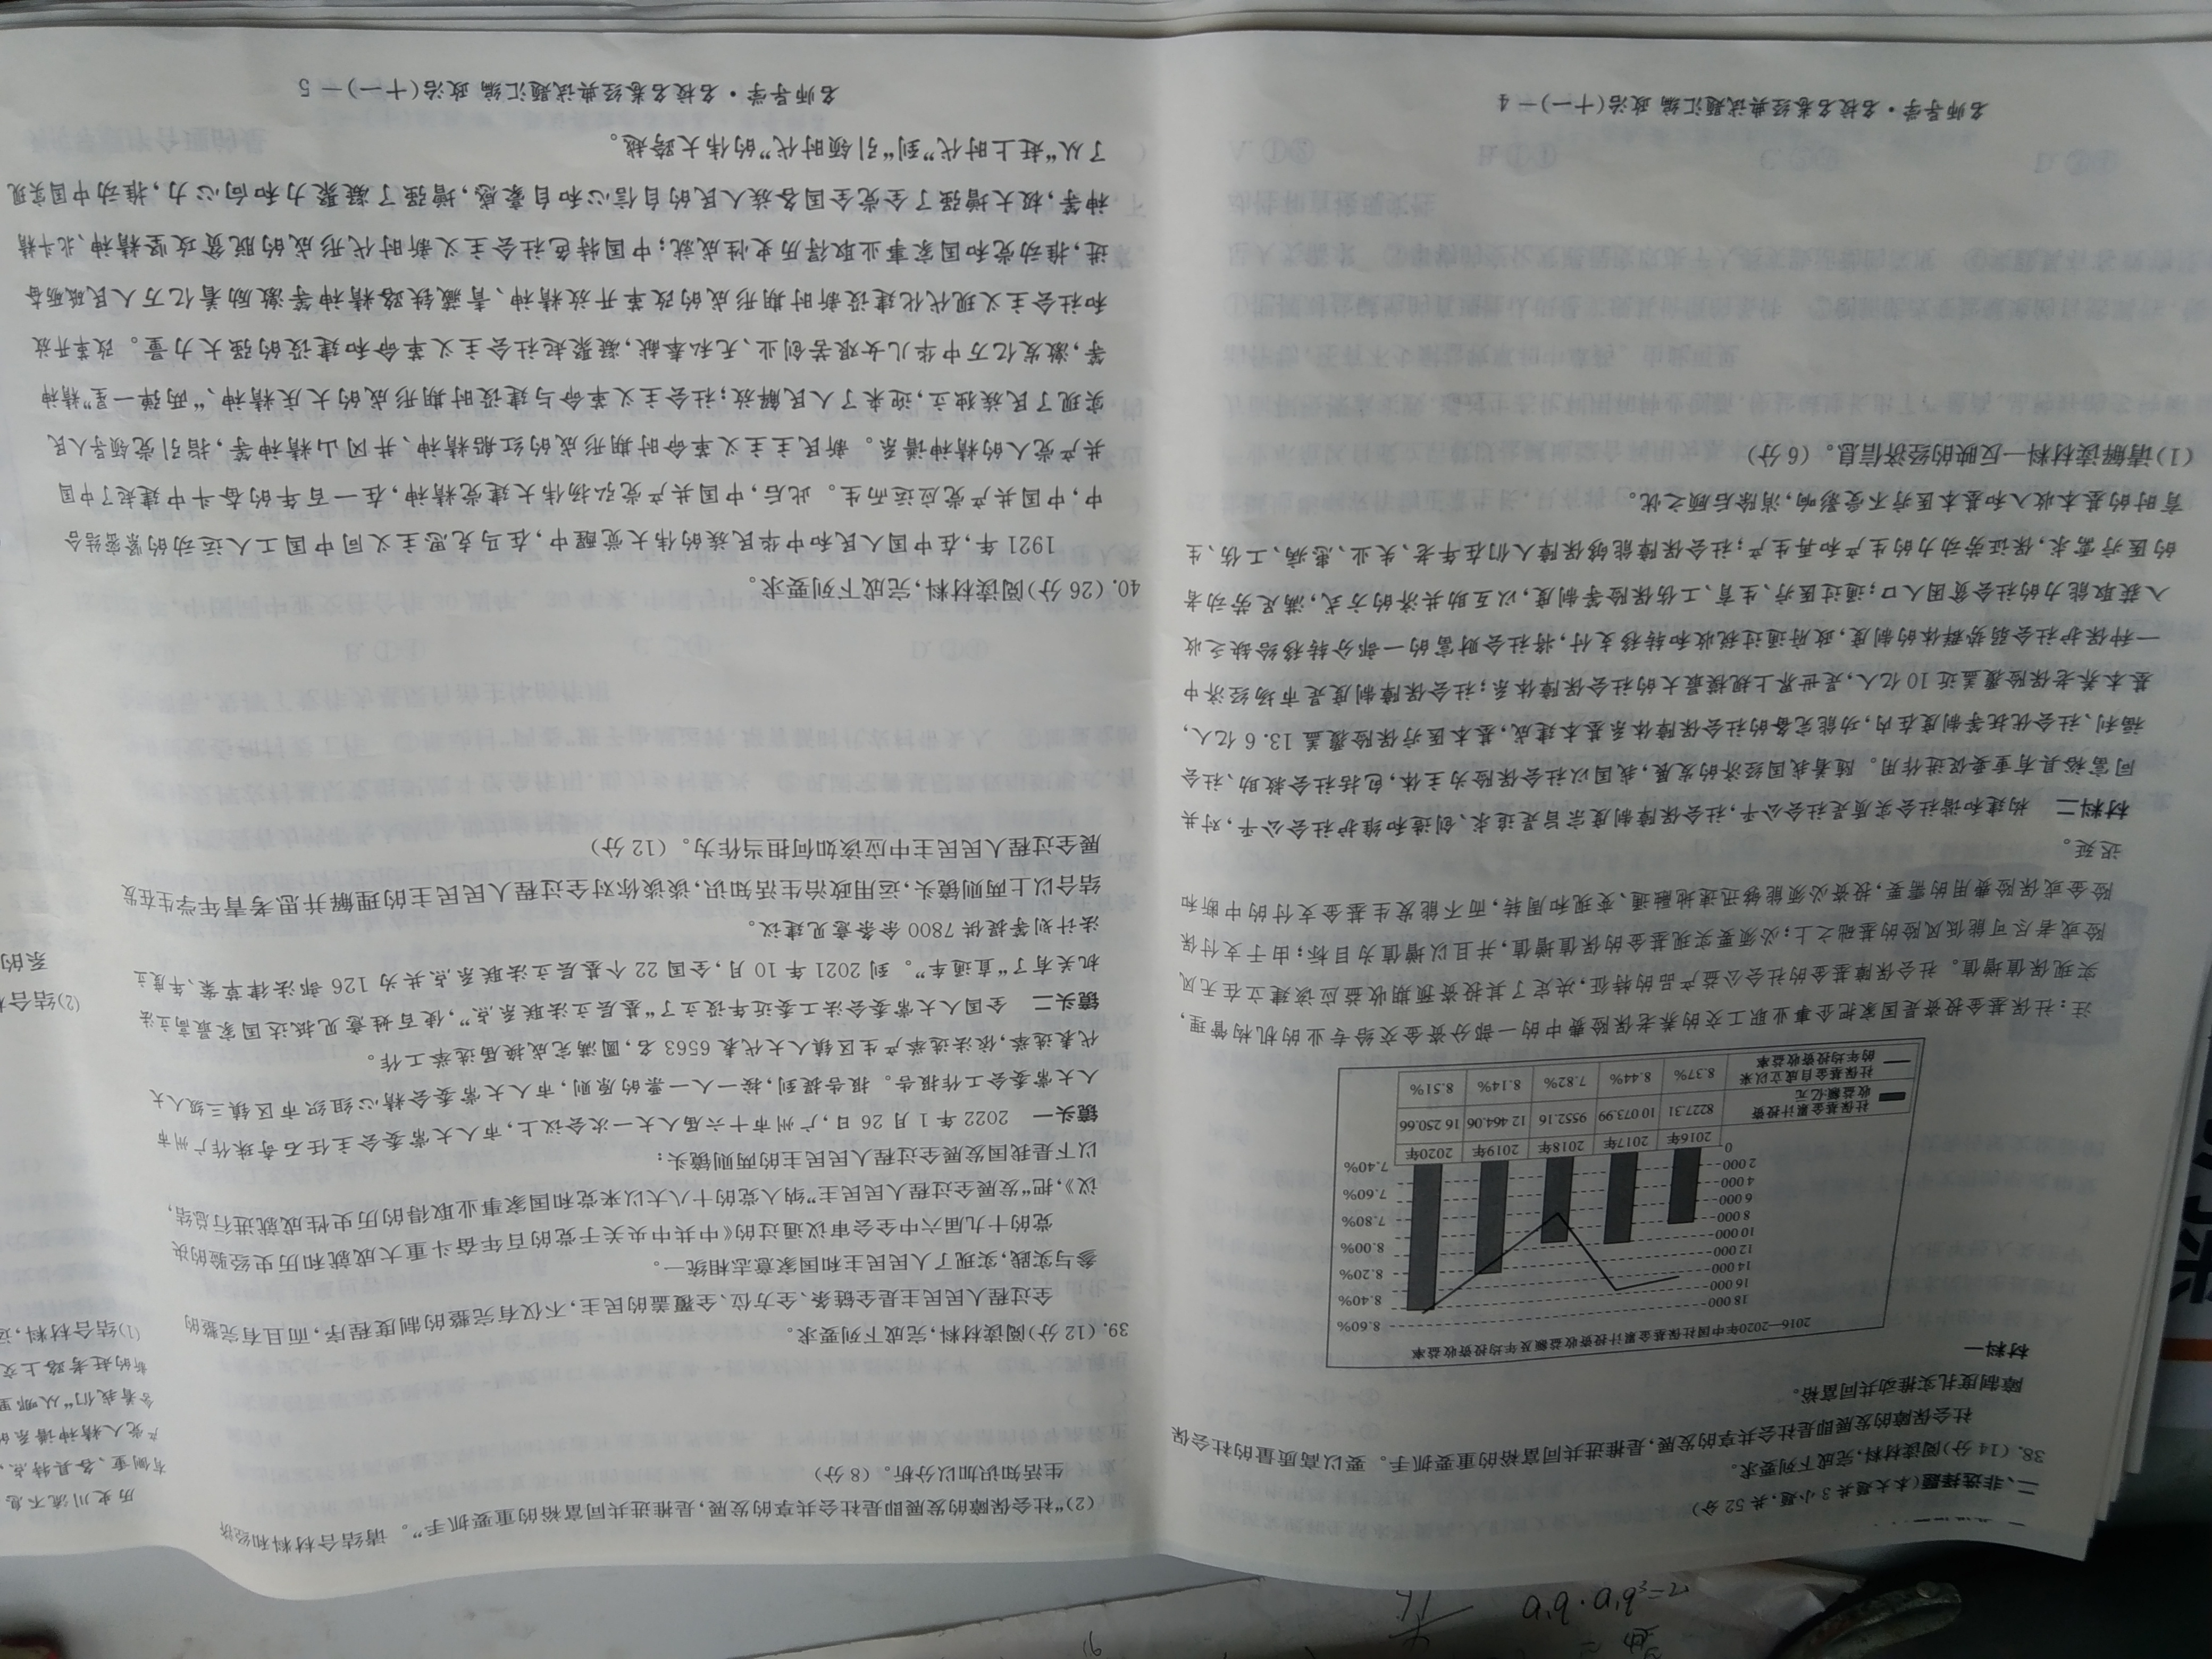 二、非选择题(本大题共3小题,共52分)
38. (14分)阅读材料,完成下列要求。
社会保障的发展即是社会共享的发展,是推进共同富裕的重要抓手。要以高质量的社会保
障制度扎实推动共同富裕。
材料一
2016—2020年中国社保基金累计投资收益额及年均投资收益率
18 000
16 000
14 000
12 000
10 000
8 000
6 000
4 000
2 000
0
8.60%
8.40%
8.20%
8.00%
7.80%
7.60%
7.40%
2016年 2017年 2018年 2019年 2020年
社保基金累计投资收益额:亿元 8227.31 10 073.99 9552.16 12 464.06 16 250.66
社保基金自成立以来的年均投资收益率 8.37% 8.44% 7.82% 8.14% 8.51%
注:社保基金投资是国家把企事业职工交的养老保险费中的一部分资金交给专业的机构管理,
实现保值增值。社会保障基金的社会公益产品的特征,决定了其投资预期收益应该建立在无风
险或者尽可能低风险的基础之上;必须要实现基金的保值增值,并且以增值为目标;由于支付保
险金或保险费用的需要,投资必须能够迅速地融通、变现和周转,而不能发生基金支付的中断和
迟延。
材料二 构建和谐社会实质是社会公平,社会保障制度宗旨是追求、创造和维护社会公平,对共
同富裕具有重要促进作用。随着我国经济的发展,我国以社会保险为主体,包括社会救助、社会
福利、社会优抚等制度在内,功能完备的社会保障体系基本建成,基本医疗保险覆盖13.6亿人,
基本养老保险覆盖近10亿人,是世界上规模最大的社会保障体系;社会保障制度是市场经济中
一种保护社会弱势群体的制度,政府通过税收和转移支付,将社会财富的一部分转移给缺乏收
入获取能力的社会贫困人口;通过医疗、生育、工伤保险等制度,以互助共济的方式,满足劳动者
的医疗需求,保证劳动力的生产和再生产;社会保障能够保障人们在年老、失业、患病、工伤、生
育时的基本收入和基本医疗不受影响,消除后顾之忧。
(1)请解读材料一反映的经济信息。(6分)
名师导学·名校名卷经典试题汇编 政治(十一)—4
(2)“社会保障的发展即是社会共享的发展,是推进共同富裕的重要抓手”。请结合材料和经济
生活知识加以分析。(8分)
39. (12分)阅读材料,完成下列要求。
全过程人民民主是全链条、全方位、全覆盖的民主,不仅有完整的制度程序,而且有完整的
参与实践,实现了人民民主和国家意志相统一。
党的十九届六中全会审议通过的《中共中央关于党的百年奋斗重大成就和历史经验的决
议》,把“发展全过程人民民主”纳入党的十八大以来党和国家事业取得的历史性成就进行总结,
以下是我国发展全过程人民民主的两则镜头:
镜头一 2022年1月26日,广州市十六届人大一次会议上,市人大常委会主任石奇珠作广州市
人大常委会工作报告。报告提到,按一人一票的原则,市人大常委会精心组织市区镇三级人大
代表选举,依法选举产生区镇人大代表6563名,圆满完成换届选举工作。
镜头二 全国人大常委会法工委近年设立了“基层立法联系点”,使百姓意见抵达国家最高立法
机关有了“直通车”。到2021年10月,全国22个基层立法联系点共为126部法律草案、年度立
法计划等提供7800余条意见建议。
结合以上两则镜头,运用政治生活知识,谈谈你对全过程人民民主的理解并思考青年学生在发
展全过程人民民主中应该如何担当作为。(12分)
40. (26分)阅读材料,完成下列要求。
1921年,在中国人民和中华民族的伟大觉醒中,在马克思主义同中国工人运动的紧密结合
中,中国共产党应运而生。此后,中国共产党弘扬伟大建党精神,在一百年的奋斗中建起了中国
共产党人的精神谱系。新民主主义革命时期形成的红船精神、井冈山精神等,指引党领导人民
实现了民族独立,迎来了人民解放;社会主义革命与建设时期形成的大庆精神、“两弹一星”精神
等,激发亿万中华儿女艰苦创业、无私奉献,凝聚起社会主义革命和建设的强大力量。改革开放
和社会主义现代化建设新时期形成的改革开放精神、青藏铁路精神等激励着亿万人民砥砺奋
进,推动党和国家事业取得历史性成就;中国特色社会主义新时代形成的脱贫攻坚精神、北斗精
神等,极大增强了全党全国各族人民的自信心和自豪感,增强了凝聚力和向心力,推动中国实现
了从“赶上时代”到“引领时代”的伟大跨越。
名师导学·名校名卷经典试题汇编 政治(十一)—5
历史川流不息
有侧重、各具特点
产党人精神谱系的
答着我们“从哪里
新的赶考路上交
(1)结合材料,运
(2)结合材
系的